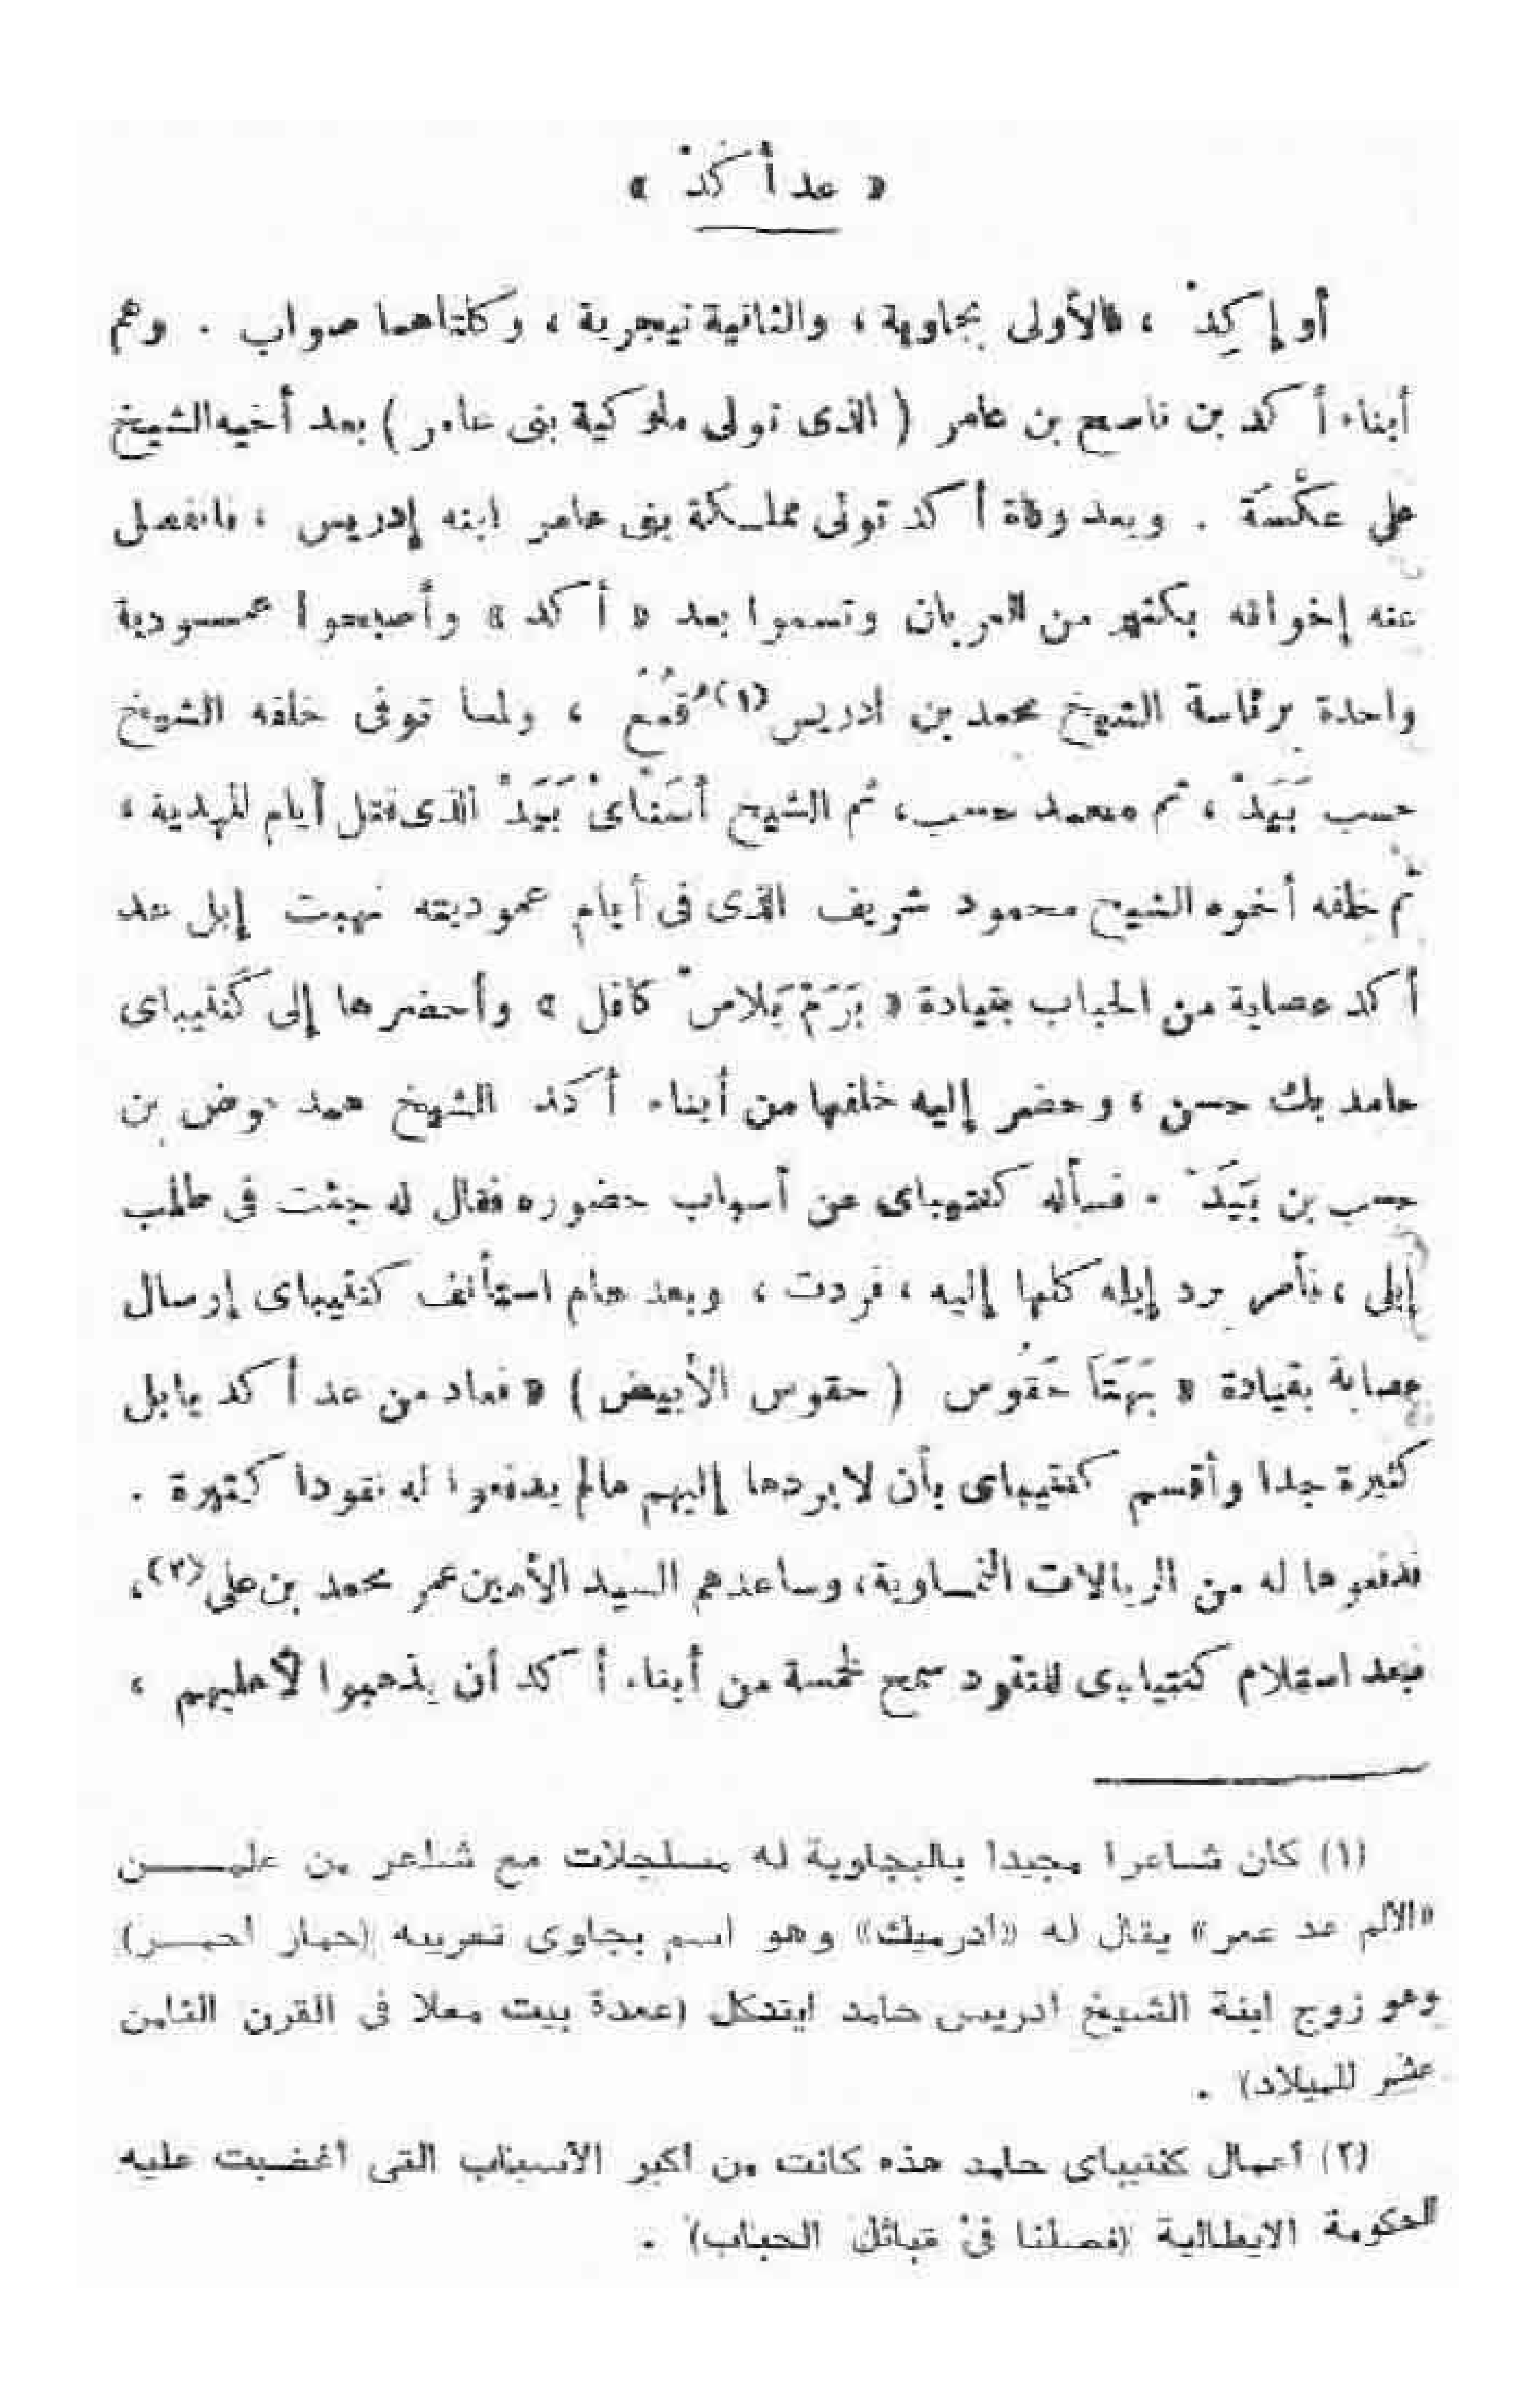 « عد أَكَدْ »
أو إكِدْ ، فالأولى بجاوية ، والثانية تيجرية ، وكلتاهما صواب . وهم
أبناء أكد بن ناصح بن عامر ( الذى تولى ملوكية بنى عامر ) بعد أخيه الشيخ
على عكْسَة . وبعد وفاة أكد تولى مملكة بنى عامر ابنه إدريس ، فانفصل
عنه إخوانه بكثير من العربان وتسموا بعد « أكد » وأصبحوا عمودية
واحدة برئاسة الشيخ محمد بن ادريس (١) ، ولما توفى خلفه الشيخ
حسب بَيَدْ ، ثم محمد حسب ، ثم الشيخ بَيَدْ الذى قتل أيام المهدية ،
ثم خلفه أخوه الشيخ محمود شريف الذى فى أيام عموديته نهبت إبل عد
أكد عصابة من الحباب بقيادة « كافل » وأحضرها إلى كَنتيباى
حامد بك حسن ، وحضر إليه خلفها من أبناء أكد الشيخ حمد عوض بن
حسب بن بَيَدْ . فسأله كنتيباى عن أسباب حضوره فقال له جئت فى طلب
إبلى ، فأمر برد إبله كلها إليه ، فردت ، وبعد عام استأنف كنتيباى إرسال
عصابة بقيادة « بَهَتَا حَقُوس ( حقوس الأبيض ) » فعاد من عد أكد بابل
كثيرة جدا وأقسم كنتيباى بأن لا يردها إليهم مالم يدفعوا له نقودا كثيرة .
فدفعوها له من الريالات النمساوية ، وساعدهم السيد الأمين عمر محمد بن على (٢) ،
فبعد استلام كنتيباى النقود سمح لخمسة من أبناء أكد أن يذهبوا لأهليهم ،
(١) كان شاعرا مجيدا بالبجاوية له مساجلات مع شاعر من
«الالم عد عمر» يقال له «ادرميك» وهو اسم بجاوى تعريبه (حمار احمر)
وهو زوج ابنة الشيخ ادريس حامد (عمدة بيت معلا فى القرن الثامن
عشر للميلاد) .
(٢) أعمال كنتيباى حامد هذه كانت من أكبر الأسباب التى أغضبت عليه
الحكومة الايطالية (فصلنا فى قبائل الحباب) .